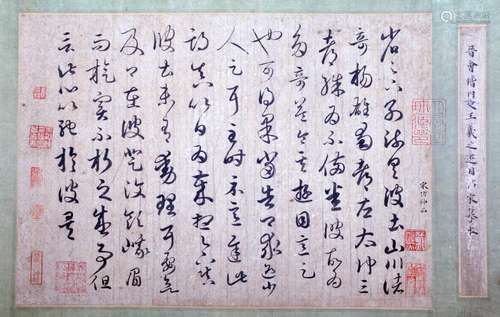 晉會稽內史王羲之遊目帖宋摹本
省足下別疏具彼土山川諸
奇揚雄蜀都左太沖三
都殊為不備悉彼故為
多奇益令其遊目意足
也可得果當告卿求迎少
人足耳至時示意遲此
期真以日為歲想足下鎮
彼土未有動理耳要欲
及卿在彼登汶領峨眉
而旋實不朽之盛事但
言此心以馳於彼矣